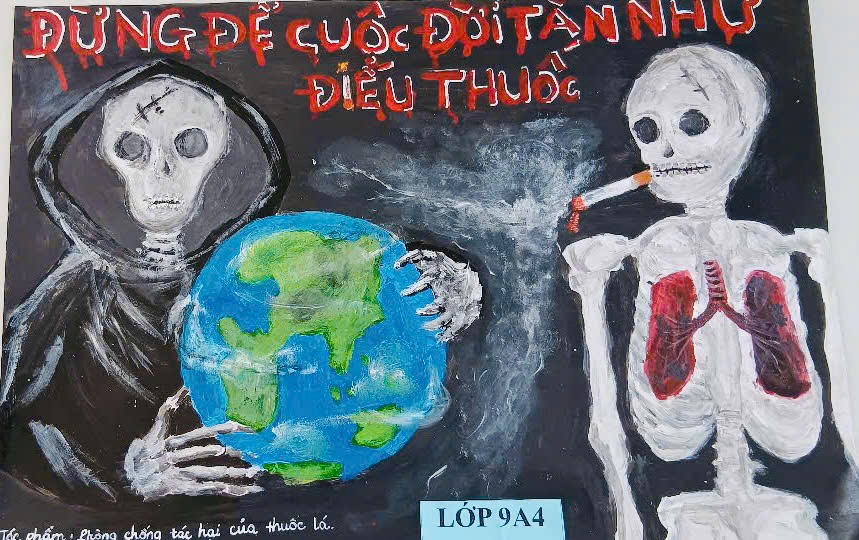 ĐỪNG ĐỂ CUỘC ĐỜI TÀN NHƯ
ĐIẾU THUỐC
Tác phẩm: Phòng chống tác hại của thuốc lá.
LỚP 9A4